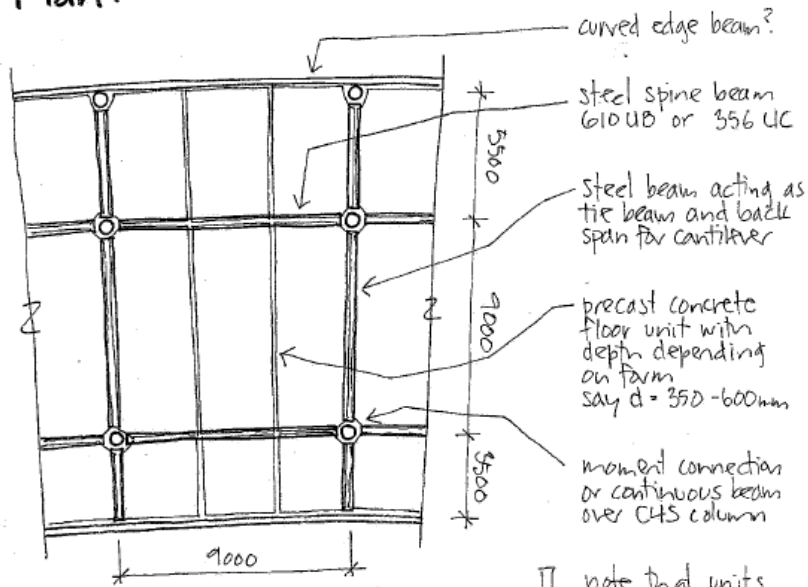 Plan:
curved edge beam?
steel spine beam
610 UB or 356 UC
5500
steel beam acting as
tie beam and back
span for cantilever
9000
precast concrete
floor unit with
depth depending
on form
say d = 350-600mm
moment connection
or continuous beam
over CHS column
3500
9000
note that units